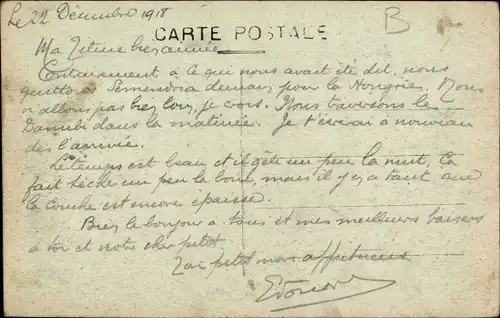 Le 22 Décembre 1918
B
CARTE POSTALE
Ma Titine bien aimée
Contrairement à ce qui nous avait été dit, nous
quittons Semendria demain pour la Hongrie. Nous
n'allons pas bien loin, je crois. Nous traversons le
Danube dans la matinée. Je t'écrirai à nouveau
dès l'arrivée.
Le temps est beau et il gèle un peu la nuit, ça
fait sécher un peu la boue, mais il y en a tant que
la couche est encore épaisse.
Bien le bonjour à tous et mes meilleurs baisers
à toi et notre cher petit
Ton petit mari affectueux
Edouard